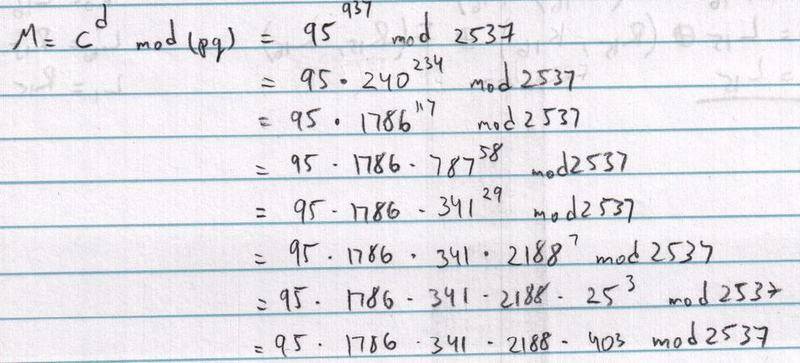 M = C^d mod (pq) = 95^937 mod 2537
= 95 · 240^234 mod 2537
= 95 · 1786^117 mod 2537
= 95 · 1786 · 787^58 mod 2537
= 95 · 1786 · 341^29 mod 2537
= 95 · 1786 · 341 · 2188^7 mod 2537
= 95 · 1786 · 341 · 2188 · 25^3 mod 2537
= 95 · 1786 · 341 · 2188 · 403 mod 2537